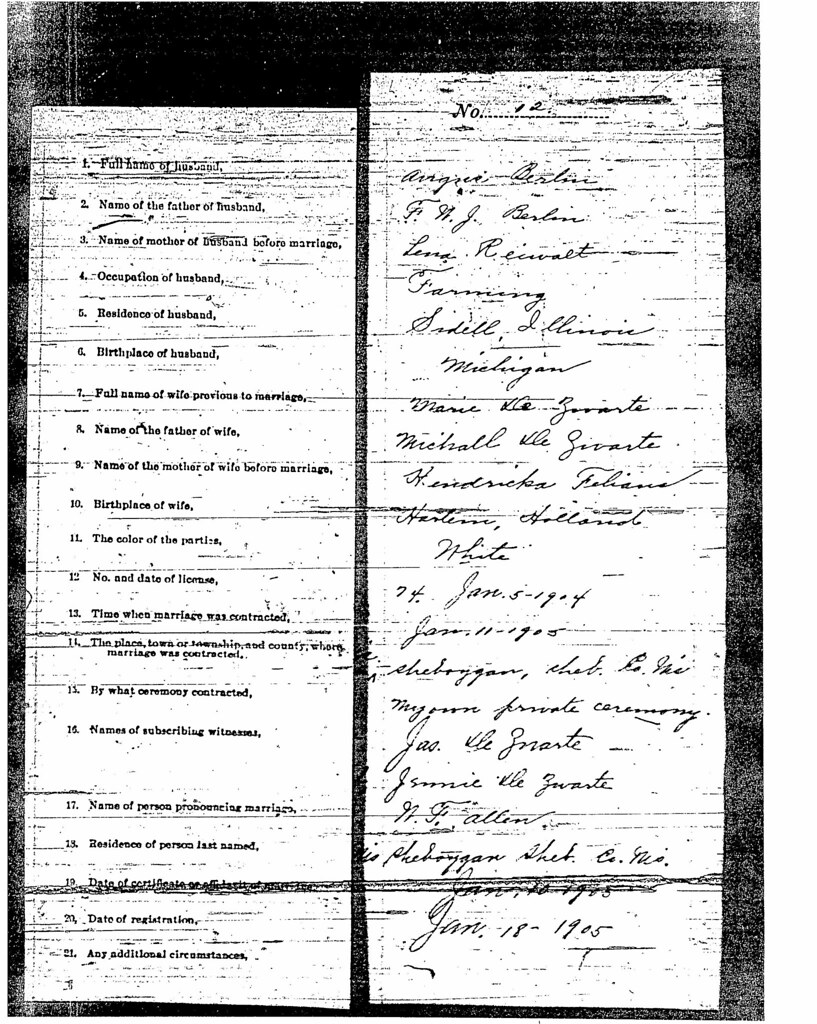 No. 12
1. Full name of husband, Angus Berlin
2. Name of the father of husband, F. W. J. Berlin
3. Name of mother of husband before marriage, Lena Reiwalt
4. Occupation of husband, Farming
5. Residence of husband, Sidell, Illinois
6. Birthplace of husband, Michigan
7. Full name of wife previous to marriage, Marie De Zwarte
8. Name of the father of wife, Michall De Zwarte
9. Name of the mother of wife before marriage, Hendricka Felians
10. Birthplace of wife, Harlem, Holland
11. The color of the parties, White
12 No. and date of license, 74. Jan. 5-1904
13. Time when marriage was contracted, Jan. 11-1905
14. The place, town or township, and county, where
marriage was contracted, Sheboygan, Sheb. Co. Wis
15. By what ceremony contracted, My own private ceremony.
16. Names of subscribing witnesses, Jas. De Zwarte
Jennie De Zwarte
17. Name of person pronouncing marriage, W. F. Allen
18. Residence of person last named, Sheboygan Sheb. Co. Wis.
19. Date of certificate or affidavit of marriage Jan. 1905
20. Date of registration, Jan. 18-1905
21. Any additional circumstances,